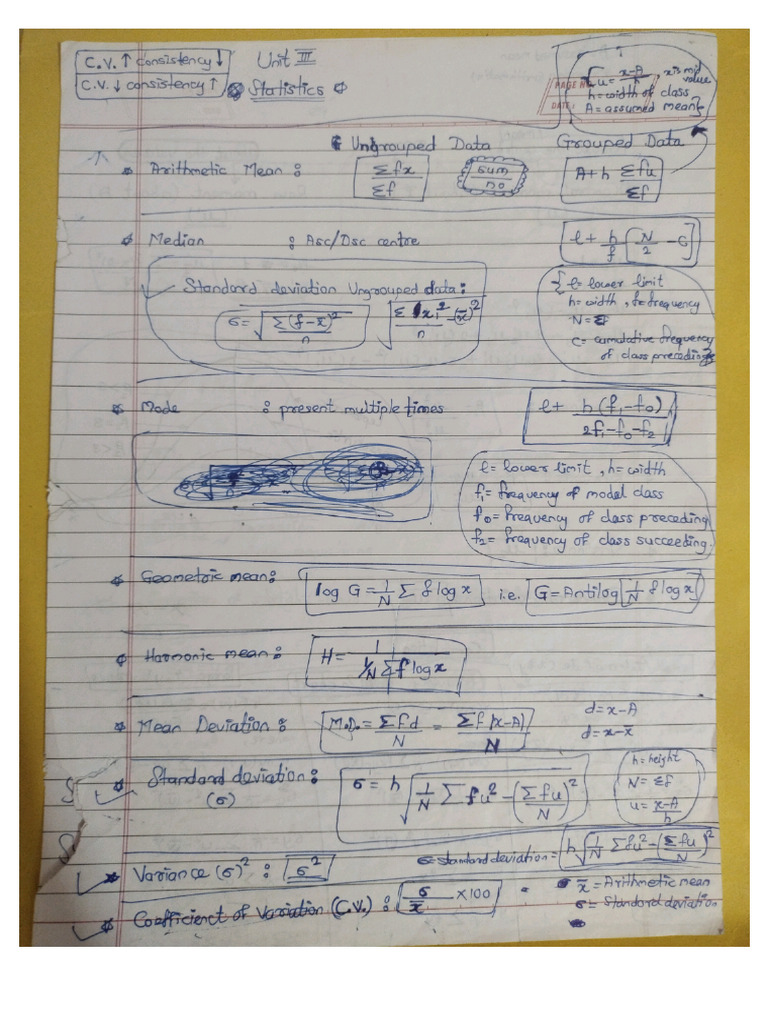 C.V. ↑ consistency ↓
C.V. ↓ consistency ↑
Unit III
Statistics
PAGE NO.
DATE:
{ u = (x-A)/h , x is mid value
h = width of class
A = assumed mean }
Ungrouped Data
Grouped Data
Arithmetic Mean : Σfx/Σf sum/no A + h Σfu/Σf
Median : Asc/Dsc centre l + h/f [N/2 - C]
{ l = lower limit
h = width , f = frequency
N = Σf
C = cumulative frequency
of class preceding }
Standard deviation Ungrouped data :
σ = √(Σ(f-x̄)²/n) √(Σxi²/n - (x̄)²)
Mode : present multiple times l + h(f₁-f₀)/(2f₁-f₀-f₂)
l = lower limit , h = width
f₁ = frequency of model class
f₀ = frequency of class preceding
f₂ = frequency of class succeeding.
Geometric mean : log G = 1/N Σ f log x i.e. G = Antilog [1/N f log x]
Harmonic mean : H = 1/(1/N Σ f log x)
Mean Deviation : M.D. = Σfd/N = Σf|x-A|/N
d = x-A
d = x-x̄
Standard deviation : (σ) σ = h √(1/N Σfu² - (Σfu/N)²)
h = height
N = Σf
u = (x-A)/h
Variance (σ)² : σ²
σ = standard deviation = h √(1/N Σfu² - (Σfu/N)²)
Coefficient of Variation (C.V.) : σ/x̄ × 100
x̄ = Arithmetic mean
σ = Standard deviation